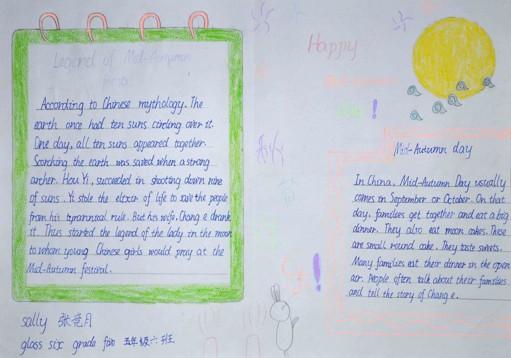 Legend of Mid-Autumn
According to Chinese mythology. The
earth once had ten suns circling over it.
One day, all ten suns appeared together
Scorching the earth was saved when a strong
archer. Hou Yi, succeeded in shooting down nine
of suns. Yi stole the elixir of life to save the people
from his tyrannical rule. But his wife, Chang e drank
it. Thus started the legend of the lady in the moon
to whom young Chinese girls would pray at the
Mid-Autumn festival.
sally
glass six grade five 五年级六班
Happy
Mid-Autumn day
In China, Mid-Autumn Day usually
comes on September or October. On that
day, families get together and eat a big
dinner. They also eat moon cakes. These
are small round cake. They taste sweets.
Many families eat their dinner in the open
air. People often talk about their families
and tell the story of Chang e.